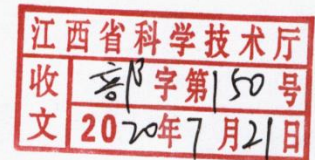 江西省科学技术厅
收文 部字第150号
2020年7月21日